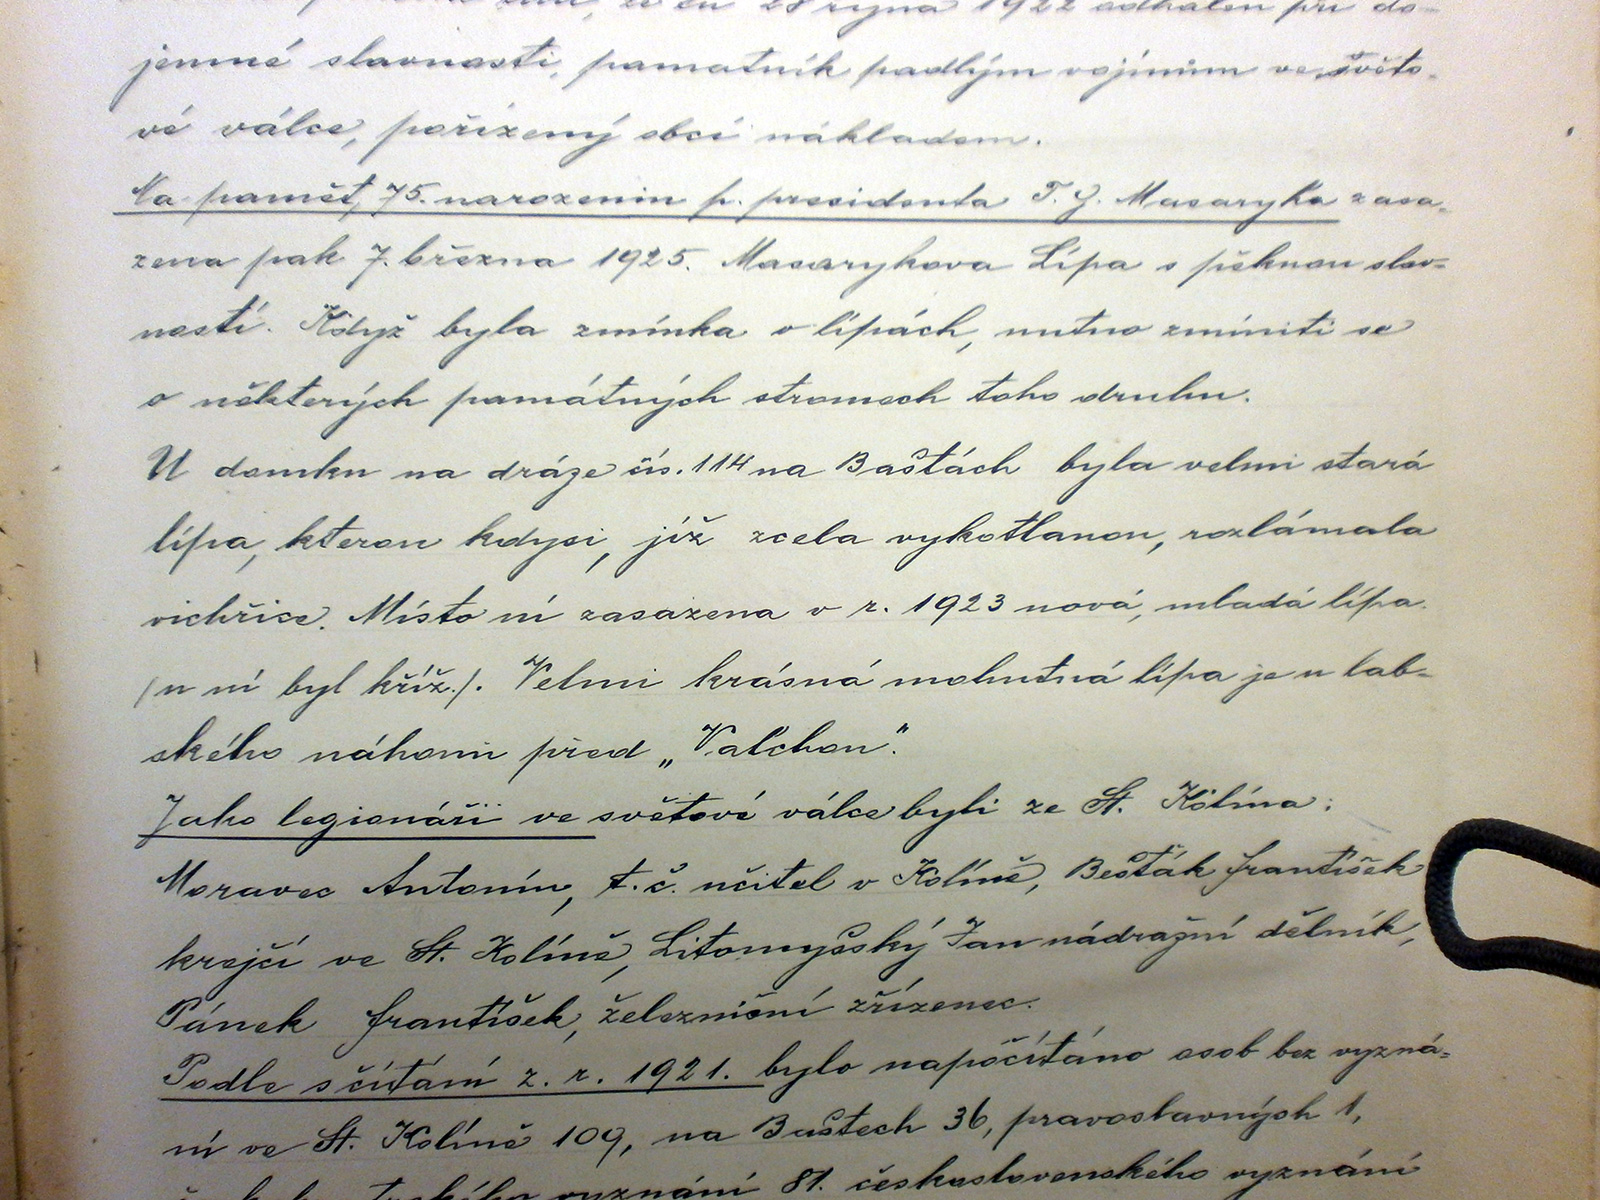 28 října 1922 odhalen při do-
jemné slavnosti, pamatník padlým vojínům ve světo-
vé válce, pořízený obcí nákladem.
Na paměť, 75. narozenin p. presidenta T. G. Masaryka zasa-
zena pak 7. března 1925. Masarykova Lípa s pěknou slav-
ností. Když byla zmínka o lípách, nutno zmíniti se
o některých památných stromech toho druhu.
U domku na dráze čís. 114 na Baštách byla velmi stará
lípa, kterou kdysi, již zcela vykotlanou, rozlámala
vichřice. Místo ní zasazena v r. 1923 nová, mladá lípa.
/u ní byl kříž./. Velmi krásná mohutná lípa je u lab-
ského náhonu před „Valchou".
Jako legionáři ve světové válce byli ze St. Kolína:
Moravec Antonín, t. č. učitel v Kolíně, Bešták František
krejčí ve St. Kolíně, Litomyšský Jan nádražní dělník,
Pánek František, železniční zřízenec.
Podle sčítání z. r. 1921. bylo napočítáno osob bez vyzná-
ní ve St. Kolíně 109, na Baštech 36, pravoslavných 1,
vyznání 81. československého vyznání